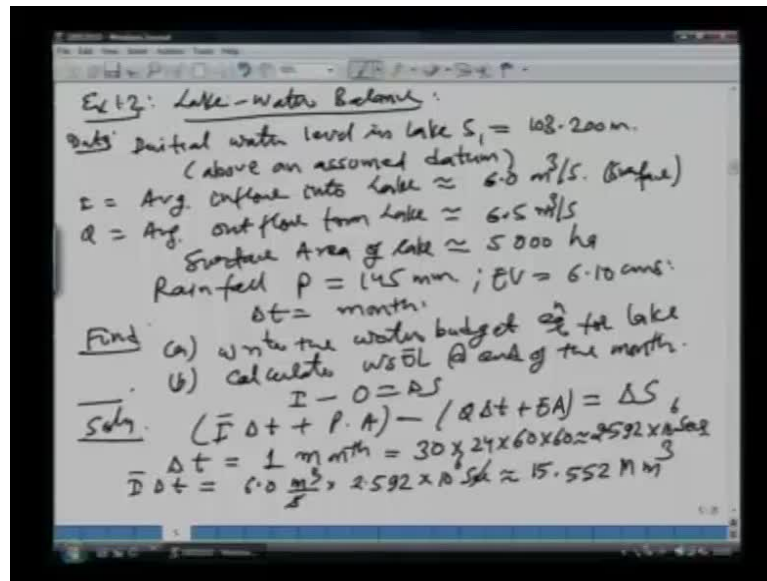 Ex 1.2: Lake-Water Balance:
Data: Initial water level in lake S₁ = 103.200 m.
(above an assumed datum)
I = Avg. inflow into Lake ≈ 6.0 m³/s. (Surface)
Q = Avg. outflow from Lake ≈ 6.5 m³/s
Surface Area of lake ≈ 5000 ha
Rainfall P = 145 mm ; EV = 6.10 cms:
Δt = month.
Find (a) write the water budget eqⁿ for lake
(b) calculate WSEL @ end of the month.
I - O = ΔS
Soln. (Ī Δt + P.A) - (QΔt + EA) = ΔS
Δt = 1 month = 30 x 24 x 60 x 60 ≈ 2.592 x 10⁶ Sec
Ī Δt = 6.0 m³/s x 2.592 x 10⁶ Sec ≈ 15.552 M m³